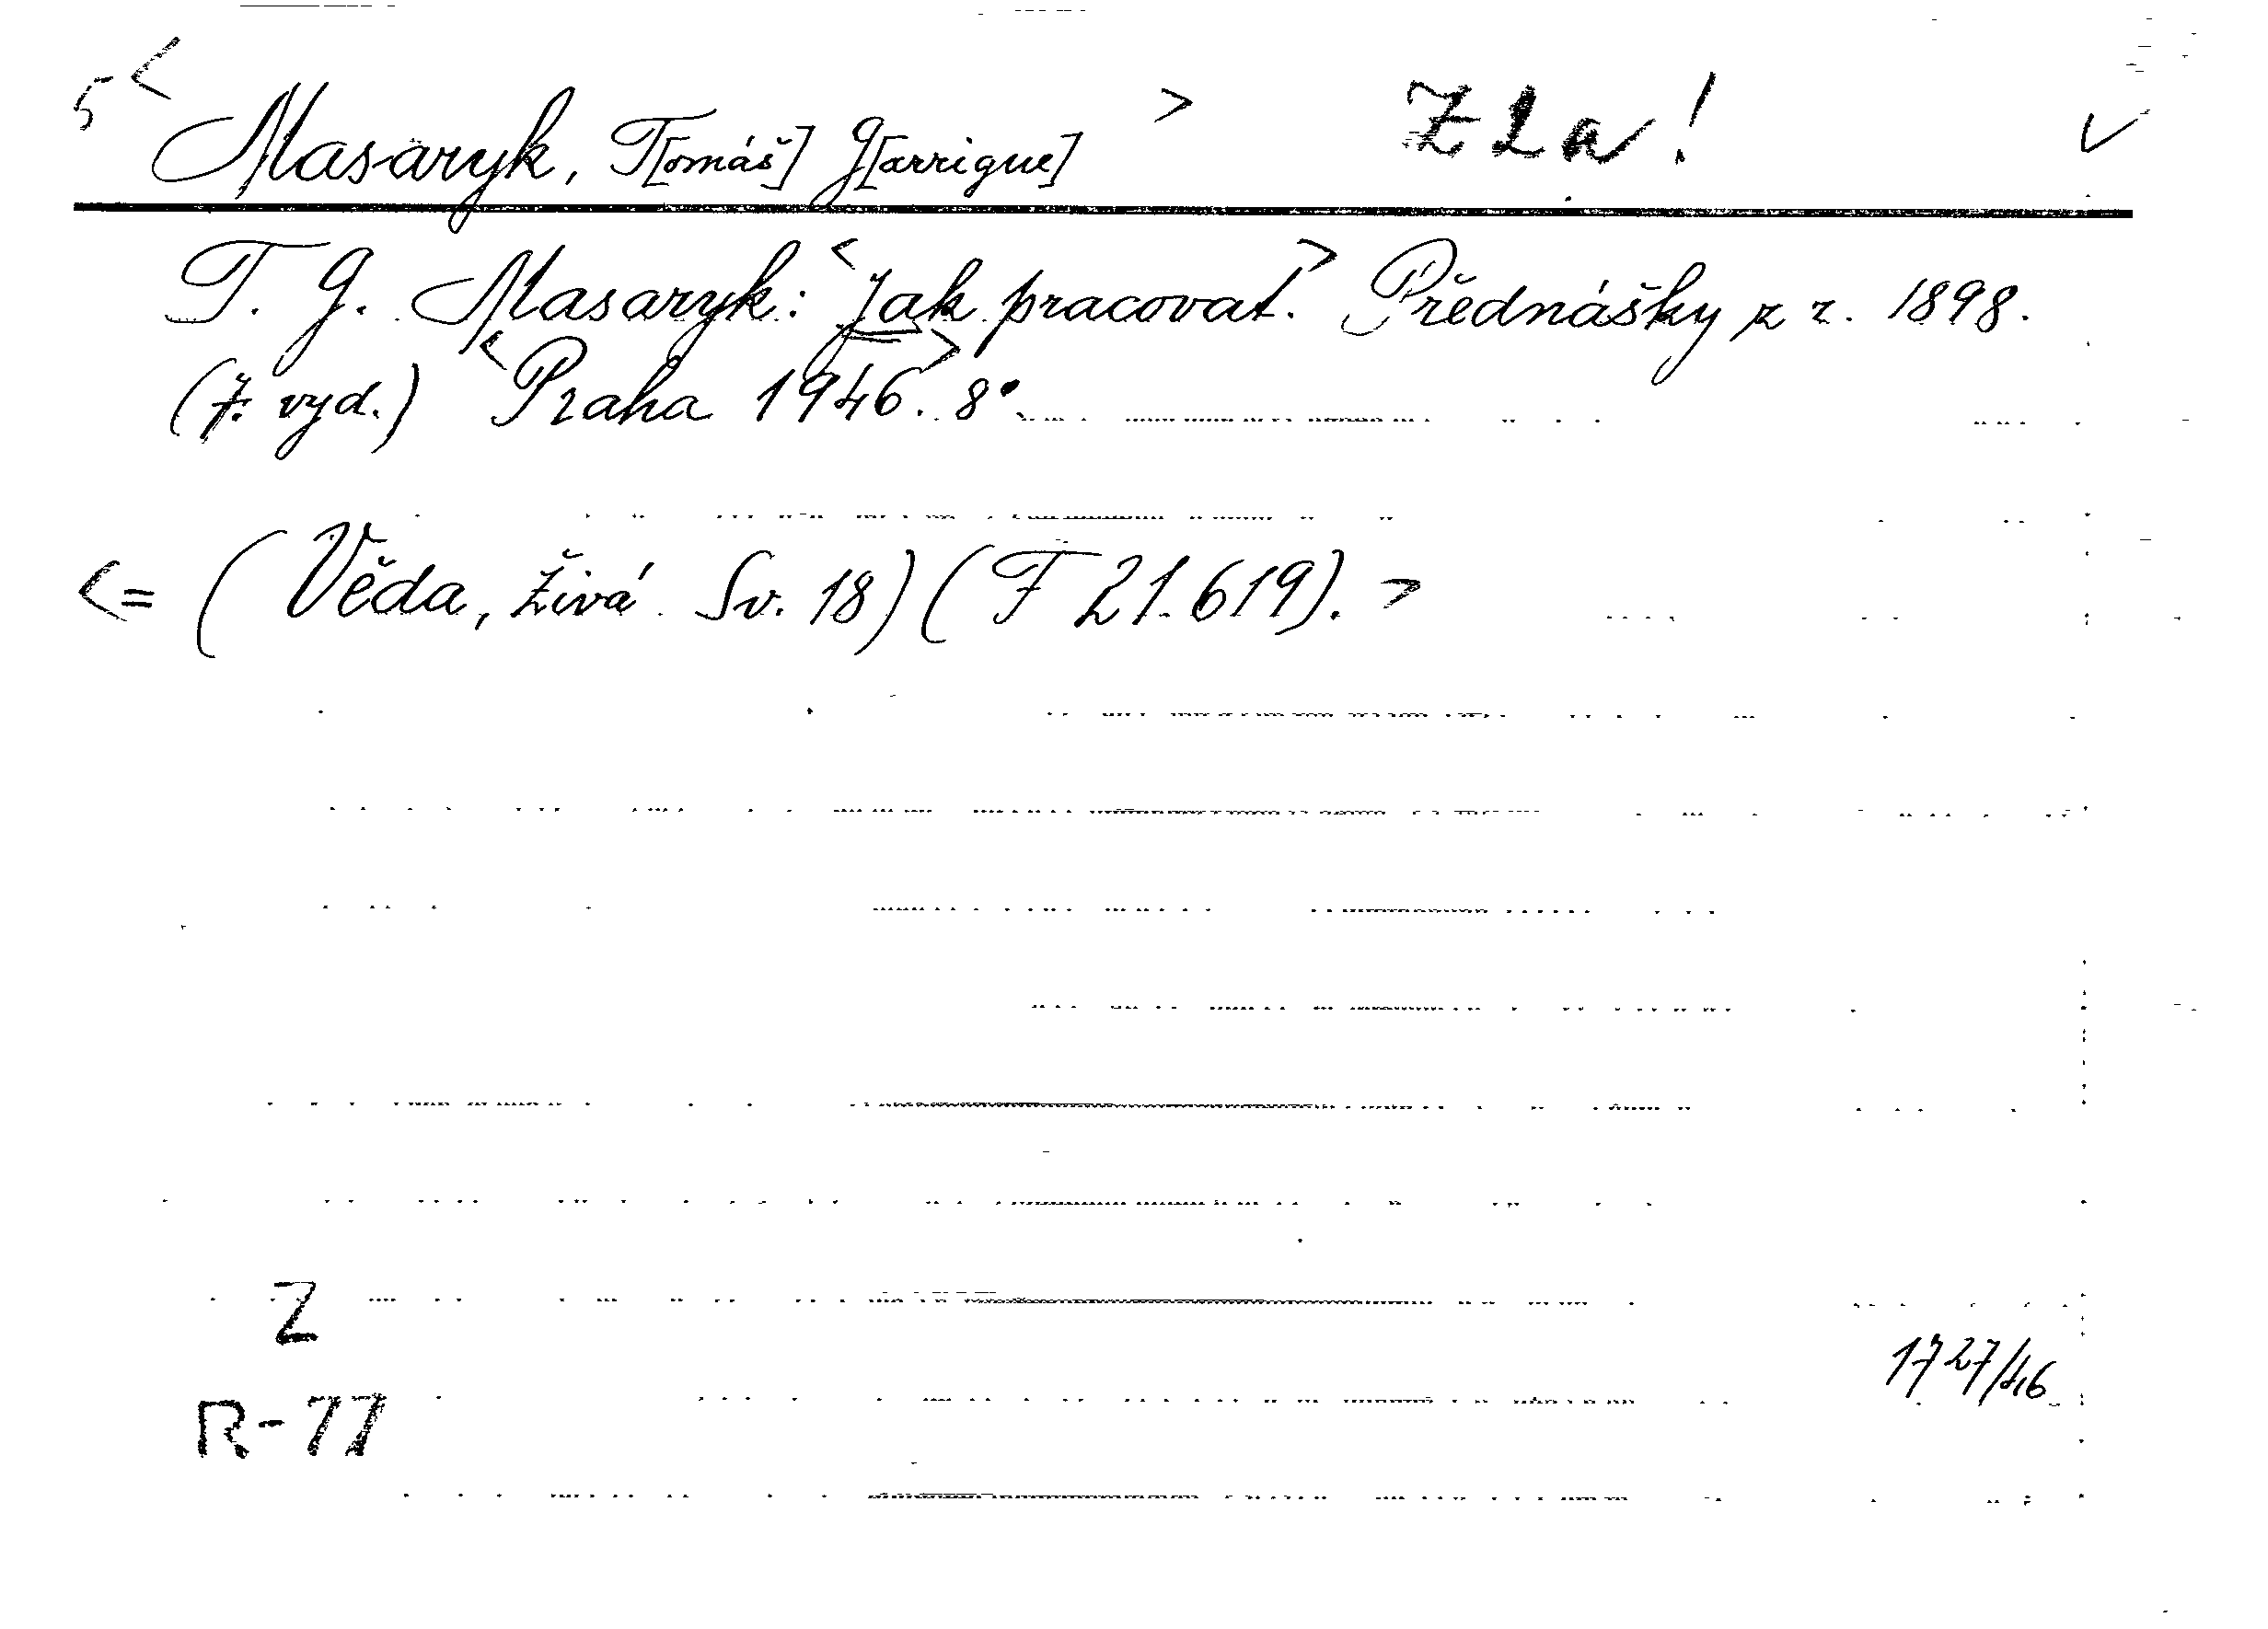 5 < Masaryk, T[omáš] G[arrigue] > Z La! ✓
T. G. Masaryk: <Jak pracovat.> Přednášky z r. 1898.
(7. vyd.) <Praha 1946.> 8°.
<= (Věda, živá. Sv. 18) (F 21.619). >
Z
1727/46
R-77